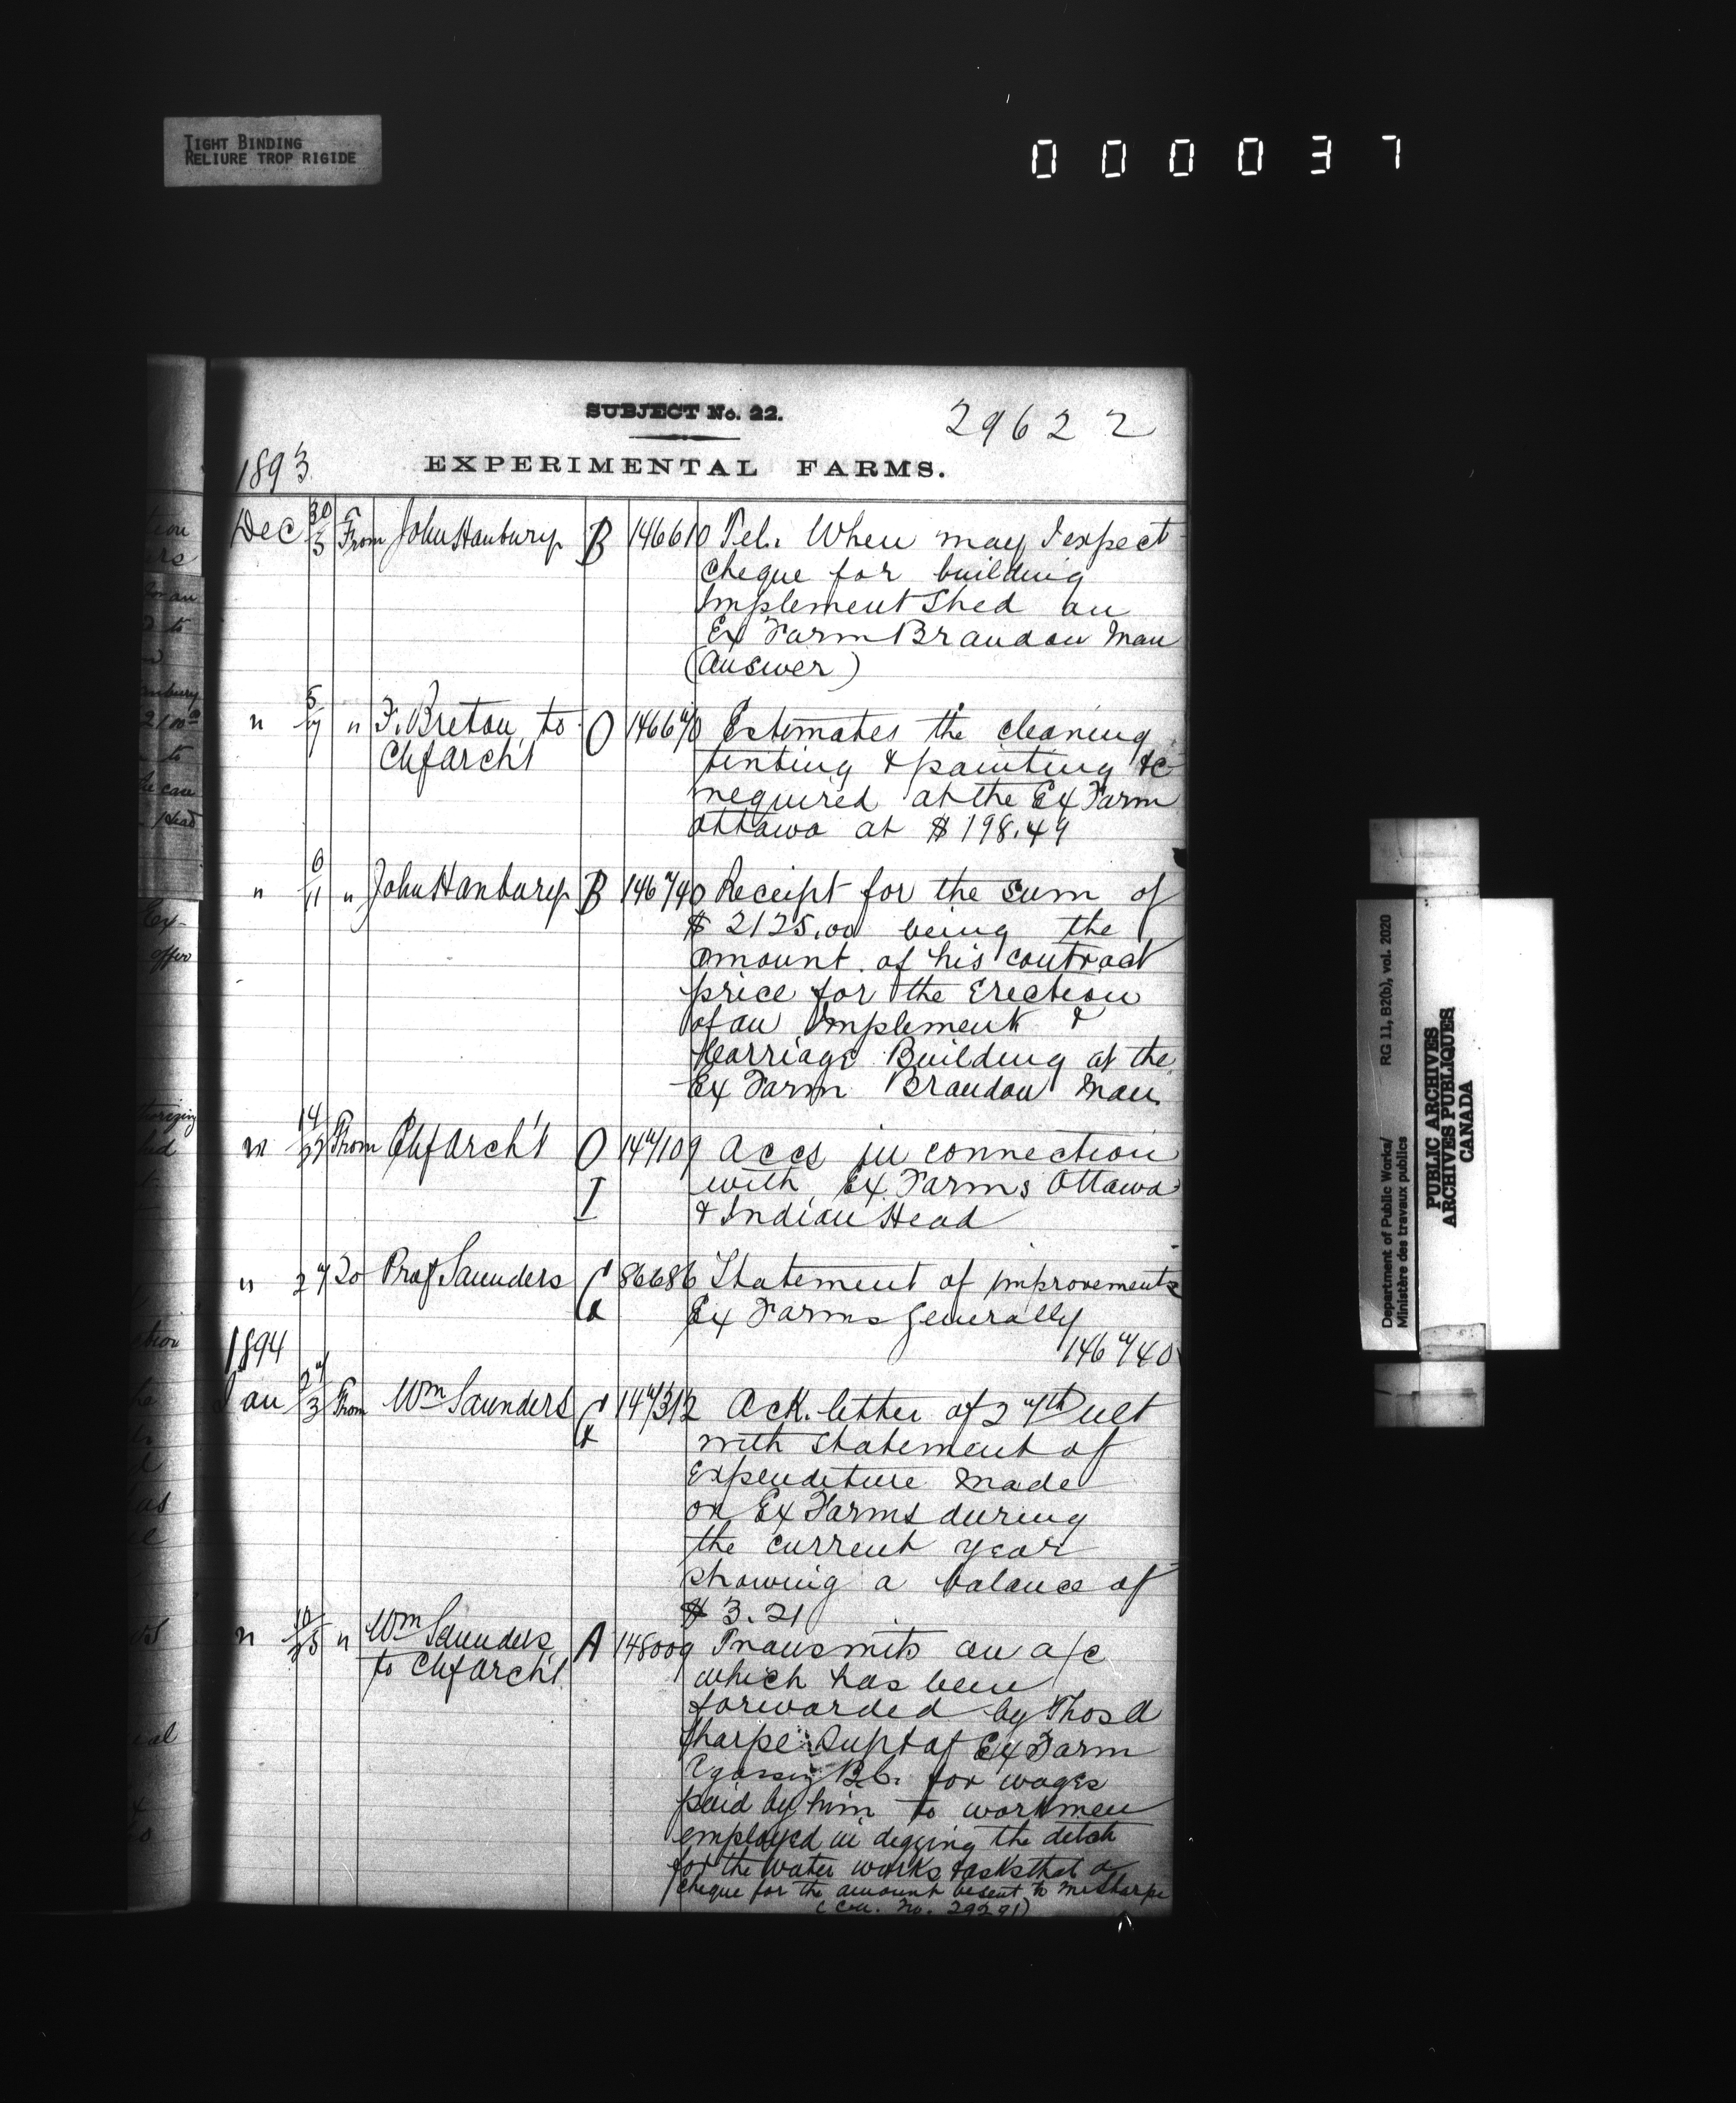 TIGHT BINDING
RELIURE TROP RIGIDE
000037
SUBJECT No. 22.
29622
1893
EXPERIMENTAL FARMS.
Dec 30/3 From John Hanbury B 146610 Tel. When may I expect
cheque for building
Implement Shed on
Ex Farm Brandon Man
(Answer)
" 5/7 " F. Breton to O 146670 Estimates the cleaning
Chf Arch't tinting & painting &c
required at the Ex Farm
Ottawa at $198.49
" 6/11 " John Hanbury B 146740 Receipt for the sum of
$2125.00 being the
amount of his contract
price for the Erection
of an Implement &
Carriage Building at the
Ex Farm Brandon Man.
" 14/27 From Chf Arch't O 147109 Accs in connection
I with Ex. Farms Ottawa
& Indian Head
" 27 To Prof Saunders 86686 Statement of improvements
Ex Farms Generally
146740
1894
Jan 27/3 From Wm Saunders 147312 Ack. letter of 27th ult
with Statement of
Expenditure made
on Ex Farms during
the current year
showing a balance of
$3.21
" 10/25 " Wm Saunders A 148009 Transmits an a/c
to Chf Arch't which has been
forwarded by Thos A
Sharpe Supt of Ex Farm
Agassiz B.C. for wages
paid by him to workmen
employed in digging the ditch
for the water works & asks that a
cheque for the amount be sent to Mr Sharpe
(Cou. No. 29291)
Department of Public Works/
Ministère des travaux publics
RG 11, B2(b), vol. 2020
PUBLIC ARCHIVES
ARCHIVES PUBLIQUES
CANADA